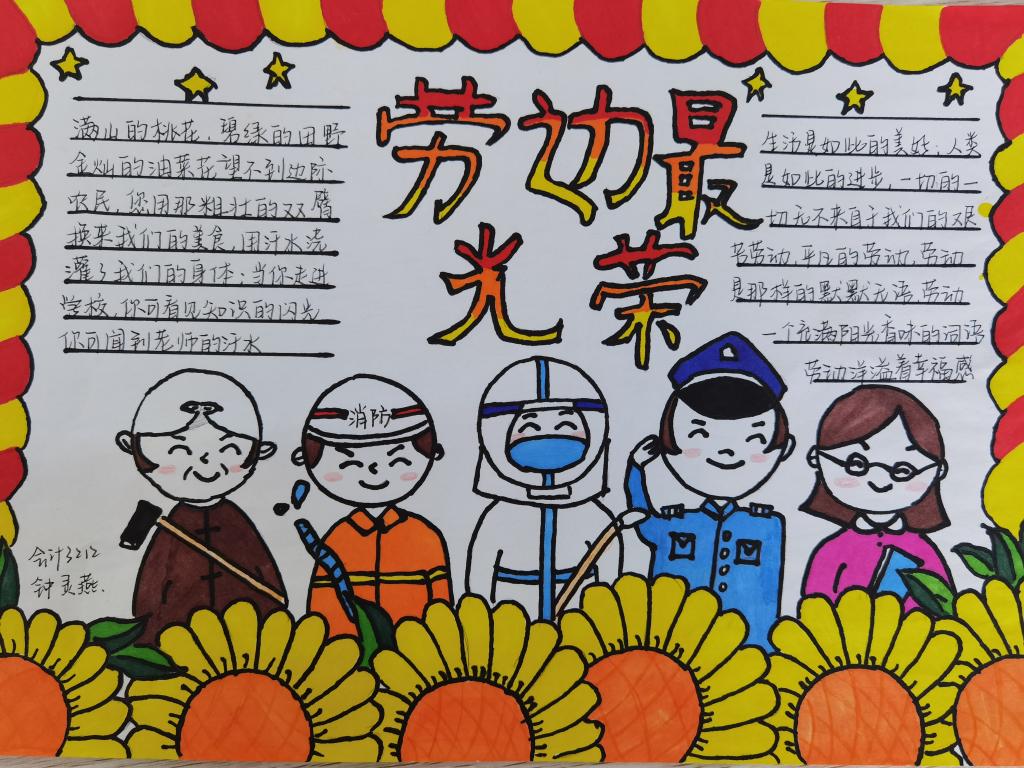 劳动最
光荣
满山的桃花，碧绿的田野
金灿的油菜花望不到边际
农民，您用那粗壮的双臂
换来我们的美食，用汗水浇
灌了我们的身体；当你走进
学校，你可看见知识的闪光
你可闻到老师的汗水
生活是如此的美好；人类
是如此的进步，一切的一
切无不来自于我们的双手
劳动，平凡的劳动，劳动
是那样的默默无语，劳动
一个充满阳光香味的词语
劳动洋溢着幸福感
消防
会计3212
钟灵燕.